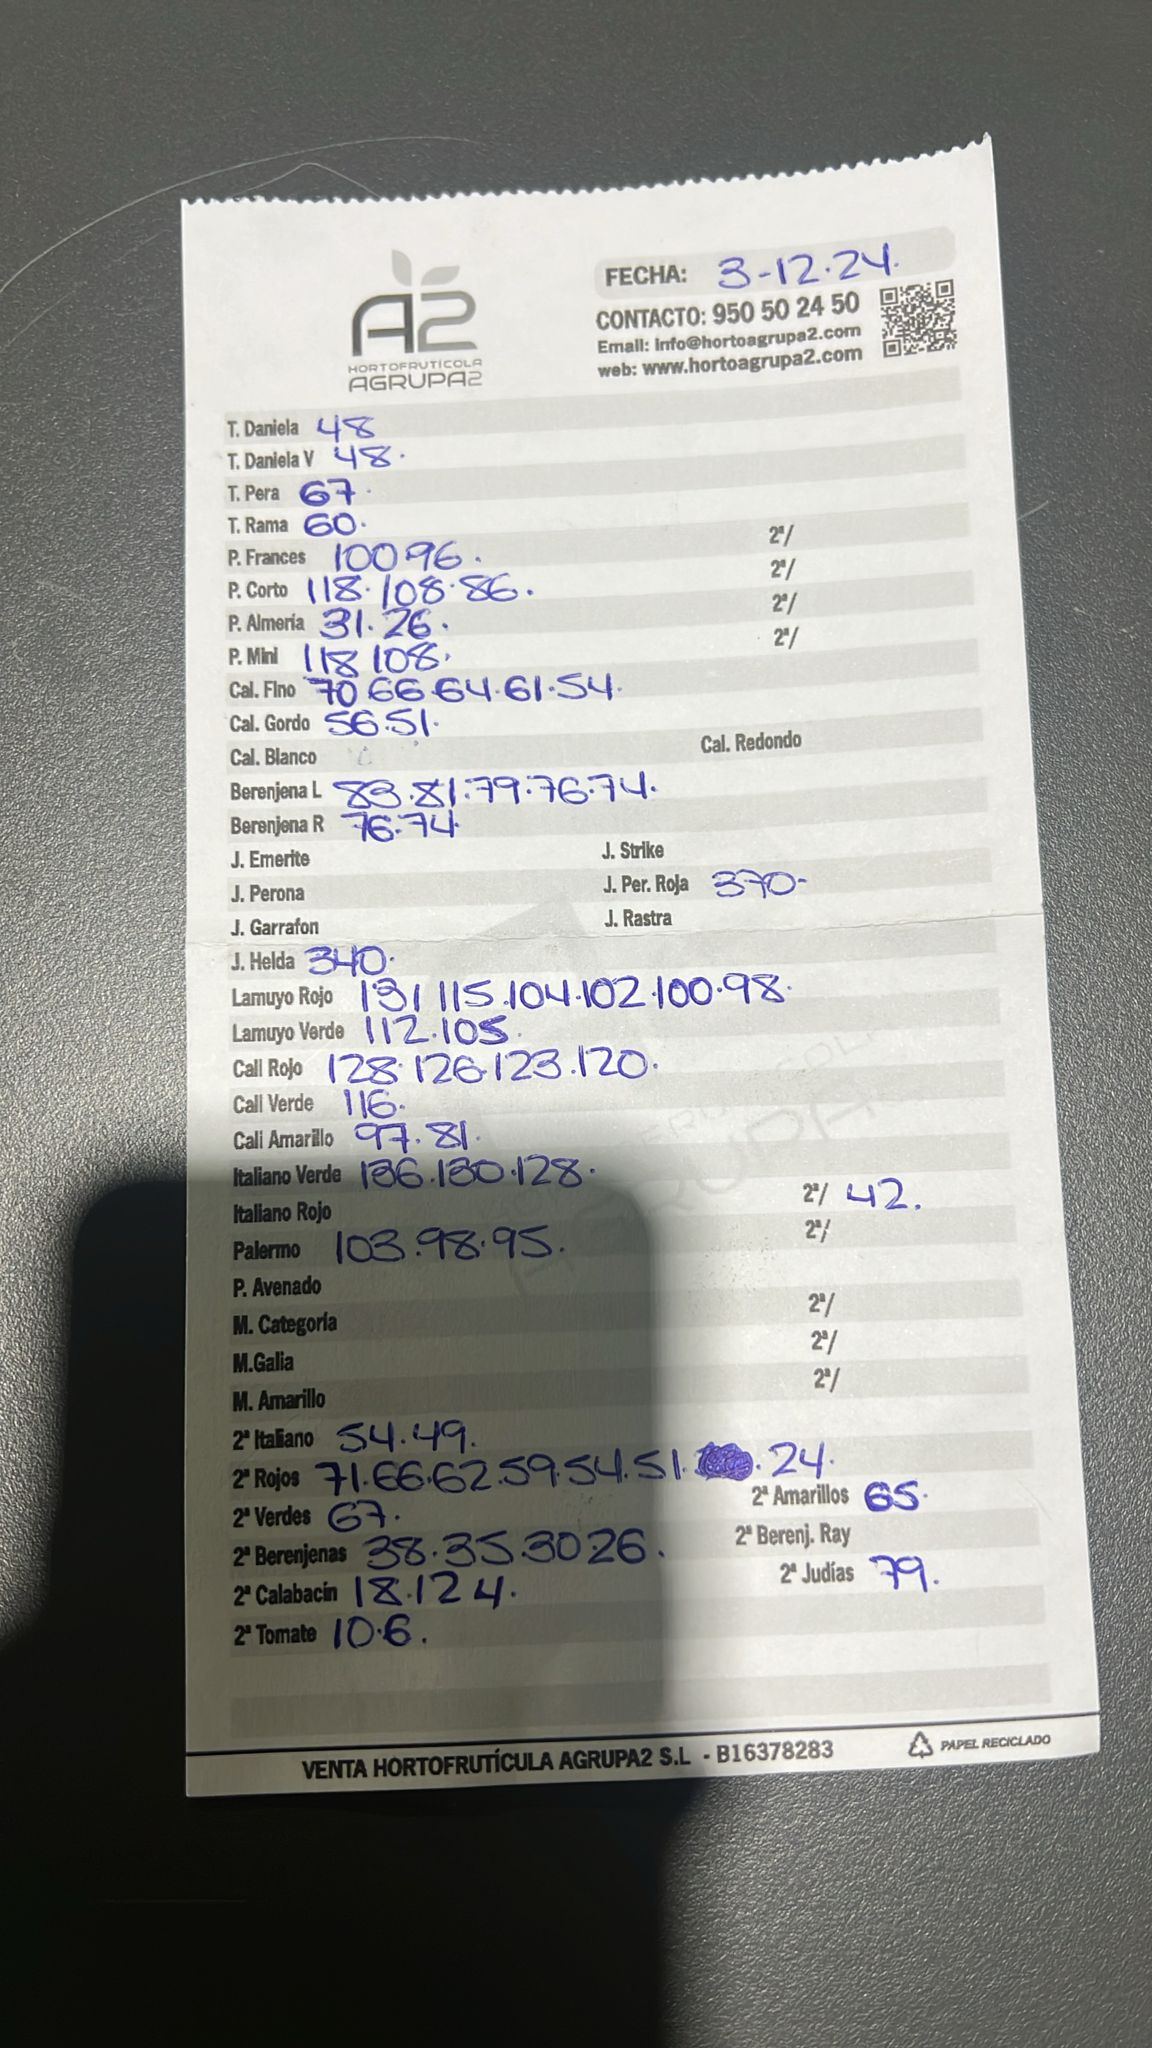 A2
HORTOFRUTÍCOLA
AGRUPA2
FECHA: 3-12.24.
CONTACTO: 950 50 24 50
Email: info@hortoagrupa2.com
web: www.hortoagrupa2.com
T. Daniela 48
T. Daniela V 48.
T. Pera 67.
T. Rama 60.
P. Frances 100.96. 2ª/
P. Corto 118.108.86. 2ª/
P. Almería 31.26. 2ª/
P. Mini 118 108. 2ª/
Cal. Fino 70 66.64.61.54.
Cal. Gordo 56.51.
Cal. Blanco Cal. Redondo
Berenjena L 83.81.79.76.74.
Berenjena R 76.74.
J. Emerite J. Strike
J. Perona J. Per. Roja 370-
J. Garrafon J. Rastra
J. Helda 340.
Lamuyo Rojo 131 115.104.102.100.98.
Lamuyo Verde 112.105.
Cali Rojo 128.126.123.120.
Cali Verde 116.
Cali Amarillo 97.81.
Italiano Verde 136.130.128. 2ª/ 42.
Italiano Rojo 2ª/
Palermo 103.98.95.
P. Avenado 2ª/
M. Categoría 2ª/
M.Galia 2ª/
M. Amarillo
2ª Italiano 54.49.
2ª Rojos 71.66.62.59.54.51. .24.
2ª Verdes 67. 2ª Amarillos 65.
2ª Berenjenas 38.35.30.26. 2ª Berenj. Ray
2ª Calabacín 18.12 4. 2ª Judías 79.
2ª Tomate 10.6.
VENTA HORTOFRUTÍCULA AGRUPA2 S.L - B16378283
PAPEL RECICLADO